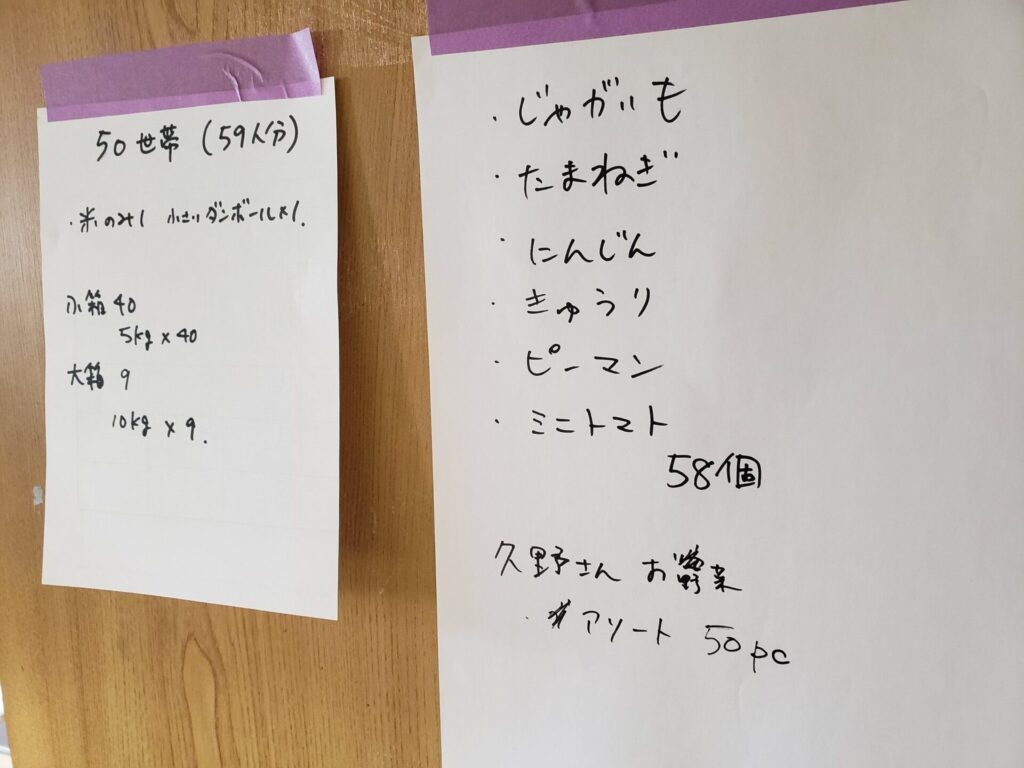 50世帯（59人分）
・米のみ1 小さいダンボール×1.
小箱 40
5kg × 40
大箱 9
10kg × 9.
・じゃがいも
・たまねぎ
・にんじん
・きゅうり
・ピーマン
・ミニトマト
58個
久野さん お野菜
・アソート 50pc